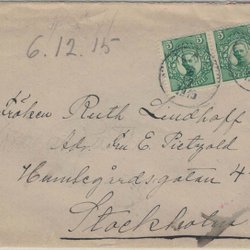 6.12.15
5 5
Fröken Ruth Lindhoff
Adr. Fru E. Pietzold
Humlegårdsgatan 4
Stockholm